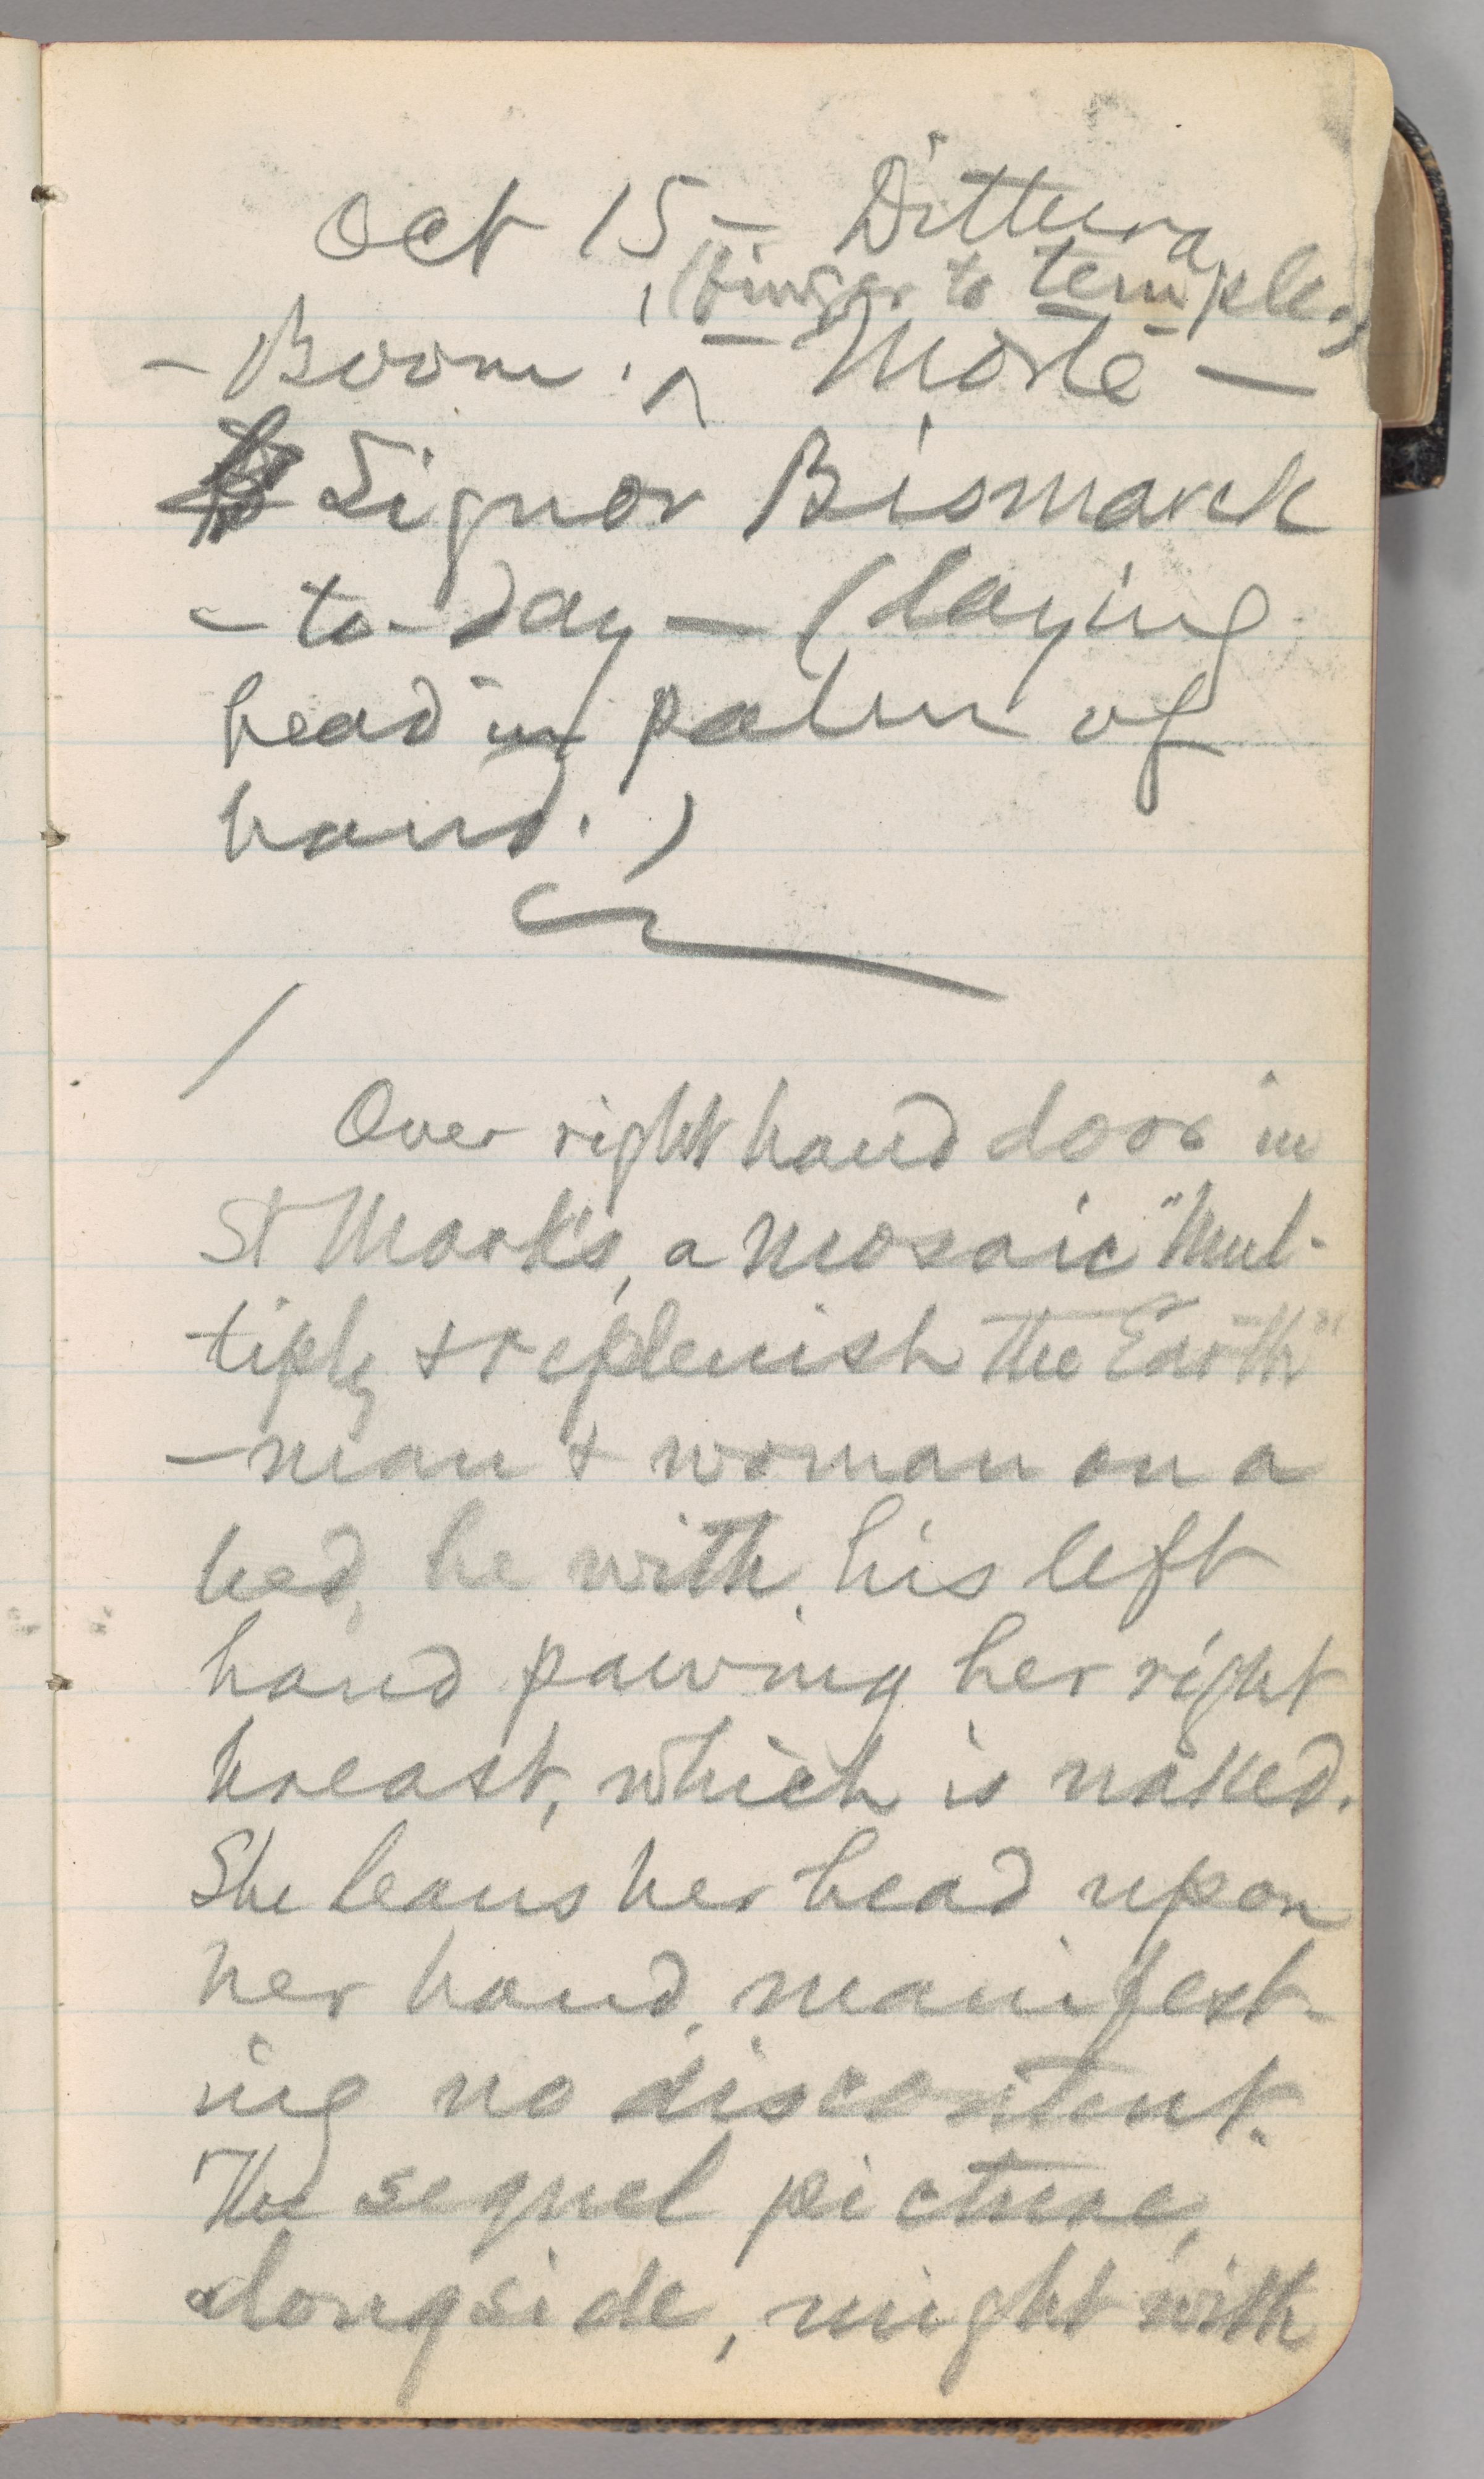 Oct 15 — Dittura
(finger to temple.)
— Boom! ^ Morte —
Signor Bismarck
— to-day — (laying
head in palm of
hand.)
/
Over right hand door in
St Mark's, a mosaic "Mul-
tiply & replenish the Earth"
— man & woman on a
bed, he with his left
hand pawing her right
breast, which is naked.
She leans her head upon
her hand, manifest-
ing no discontent.
The sequel picture,
alongside, might with